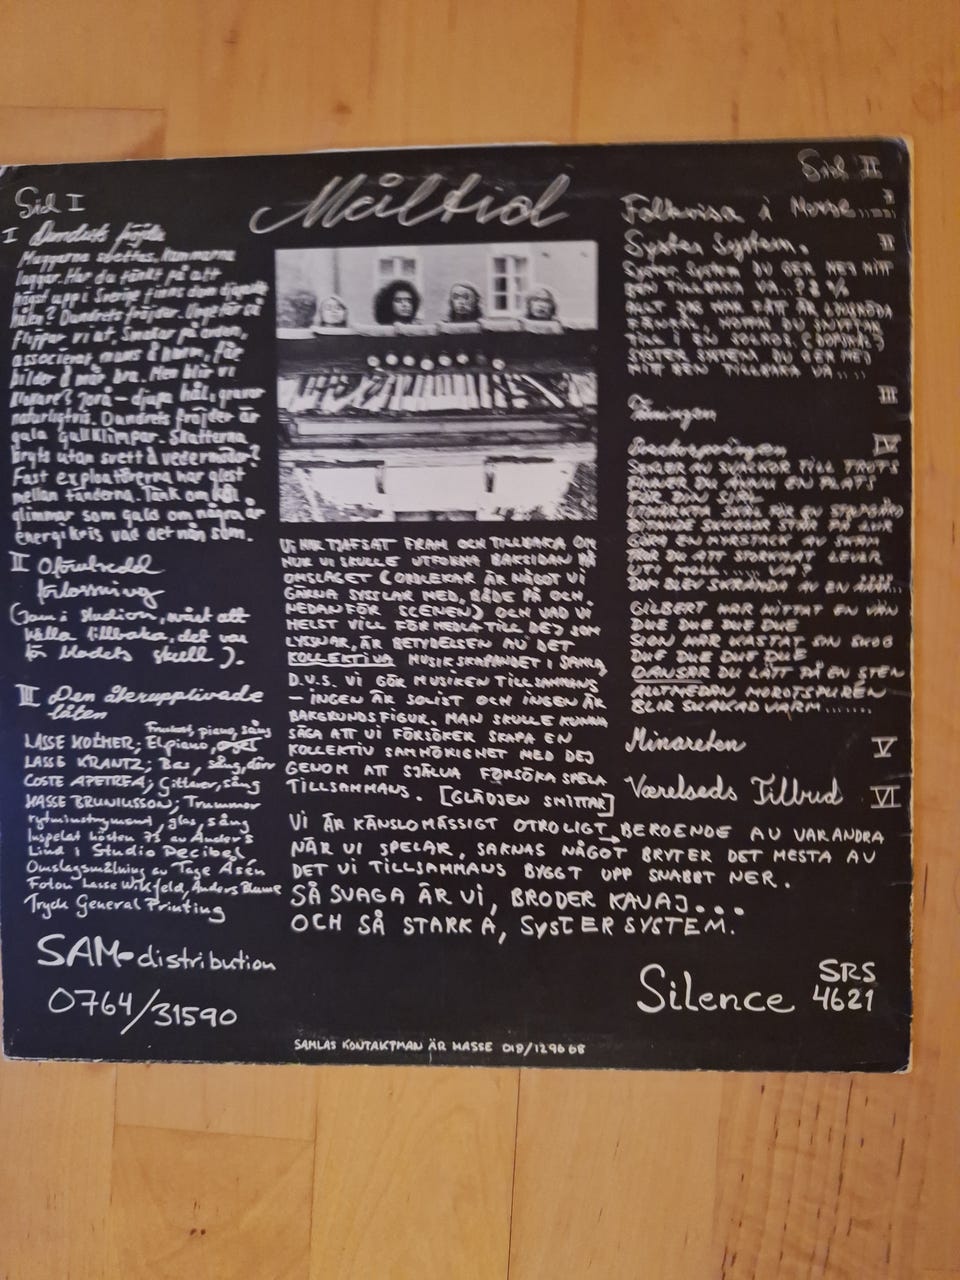 Måltid
Sid I
I Dundrets fröjder
Muggarna svettas, kannorna
laggar. Har du tänkt på att
högst upp i Sverige finns dom djupaste
hålen? Dundrets fröjder. Ungefär så
flippar vi ut. Snackar på turen,
associerar mums å hum, får
bilder å mår bra. Men blir vi
klokare? Jorå – djupa hål, gruvor
naturligtvis. Dundrets fröjder är
gula gullklimpar. Skatterna
bryts utan svett å vedermödor?
Fast exploatörerna har glest
mellan tänderna. Tänk om kol
glimmar som guld om några år
energikris vad det nån som.
II Oförutsedd
förlossning
(Jam i studion, svårt att
hålla tillbaka, det var
för bladets skull).
III Den återupplivade
låten
Frukost, piano, sång
LASSE HOLMER; Elpiano, orgel
LASSE KRANTZ; Bas, sång, dörr
COSTE APETREA; Gitarrer, sång
HASSE BRUNIUSSON; Trummor
rytminstrument, glas, sång
Inspelat hösten 73 av Anders
Lind i Studio Decibel
Omslagsmålning av Tage Åsén
Foton Lasse Wikfeld, Anders Blume
Tryck General Printing
SAM-distribution
0764/31590
VI HAR TJAFSAT FRAM OCH TILLBAKA OM
HUR VI SKULLE UTFORMA BAKSIDAN PÅ
OMSLAGET (ORDLEKAR ÄR NÅGOT VI
GÄRNA SYSSLAR MED, BÅDE PÅ OCH
NEDANFÖR SCENEN) OCH VAD VI
HELST VILL FÖRMEDLA TILL DEJ SOM
LYSSNAR, ÄR BETYDELSEN AV DET
KOLLEKTIVA MUSIKSKAPANDET I SAMLA
D.V.S. VI GÖR MUSIKEN TILLSAMMANS
– INGEN ÄR SOLIST OCH INGEN ÄR
BAKGRUNDSFIGUR. MAN SKULLE KUNNA
SÄGA ATT VI FÖRSÖKER SKAPA EN
KOLLEKTIV SAMHÖRIGHET MED DEJ
GENOM ATT SJÄLVA FÖRSÖKA SPELA
TILLSAMMANS. [GLÄDJEN SMITTAR]
VI ÄR KÄNSLOMÄSSIGT OTROLIGT BEROENDE AV VARANDRA
NÄR VI SPELAR, SAKNAS NÅGOT BRYTER DET MESTA AV
DET VI TILLSAMMANS BYGGT UPP SNABBT NER.
SÅ SVAGA ÄR VI, BRODER KAVAJ...
OCH SÅ STARKA, SYSTER SYSTEM.
SAMLAS KONTAKTMAN ÄR HASSE 018/129668
Sid II
Folkvisa i Morse..... I
Syster System. II
SYSTER SYSTEM DU GER MEJ MITT
DEN TILLBAKA VA..?
SYSTER SYSTEM. DU GER MEJ
MITT DEN TILLBAKA VA....
Tärningen III
Snorkspröngen IV
SEGLER AV SNÄCKOR TILL TROTS
FINNER DU ÄNNU EN PLATS
FÖR DIN SJÄL
GÖRA EN MYRSTACK AV SKAM
TROR DU ATT STORKNAT LEVER
UTI MOLL..... VA?
SOM BLEV SKRÄNDA AV EN ÅÅÅÅ...
GILBERT HAR HITTAT EN VÄN
DUE DUE DUE DUE
SION HAR KASTAT SIN SKOG
DUE DUE DUE DUE
DANSAR DU LÄTT PÅ EN STEN
ALLTMEDAN MOROTSPUREN
BLIR SKAKAD VARM.......
Minareten V
Værelseds Tilbud VI
Silence SRS
4621